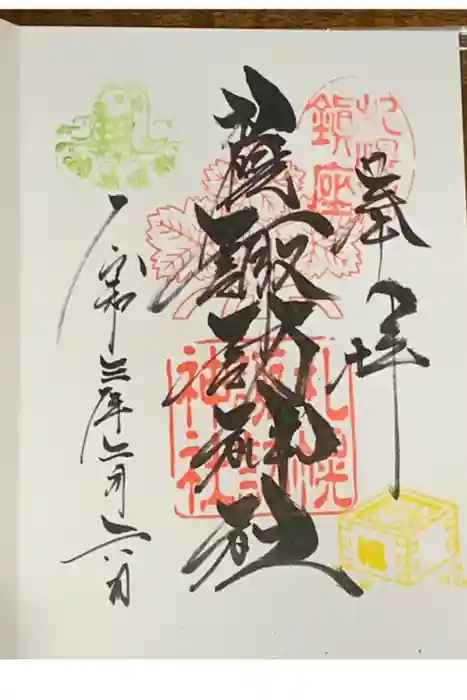 奉拝
札幌
鎮座
諏訪神社
札幌
諏訪
神社
令和三年六月六日